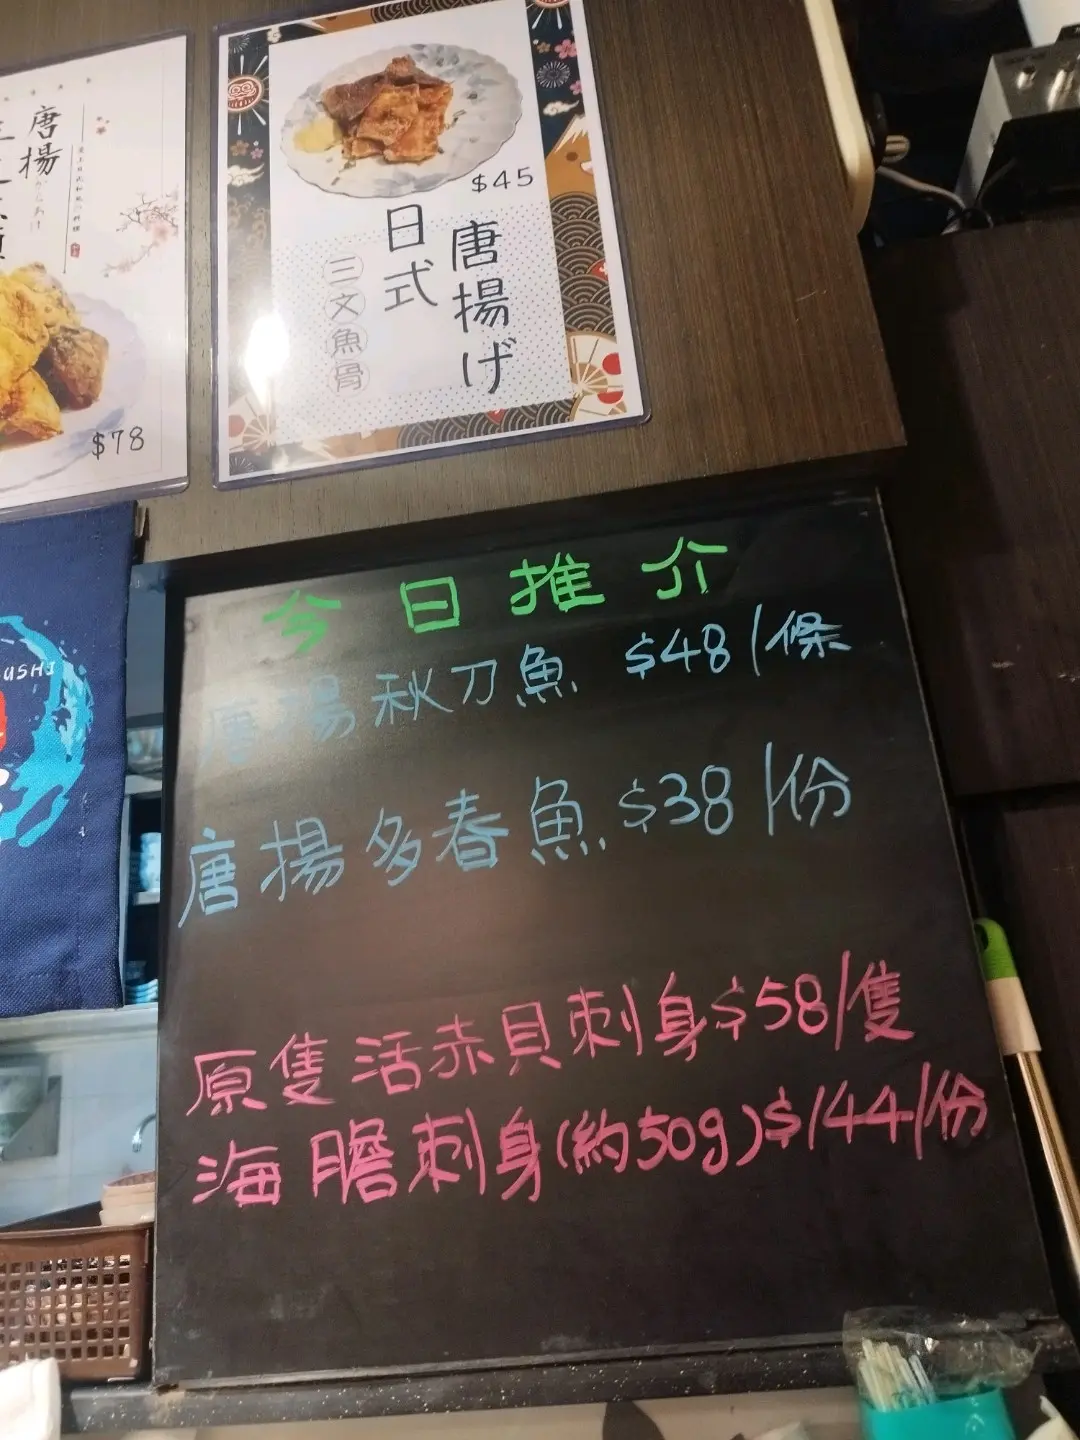 唐揚
$78
$45
唐揚げ
日式
三文魚骨
USHI
今日推介
唐揚秋刀魚 $48/條
唐揚多春魚 $38/份
原隻活赤貝刺身$58/隻
海膽刺身(約50g)$144/份